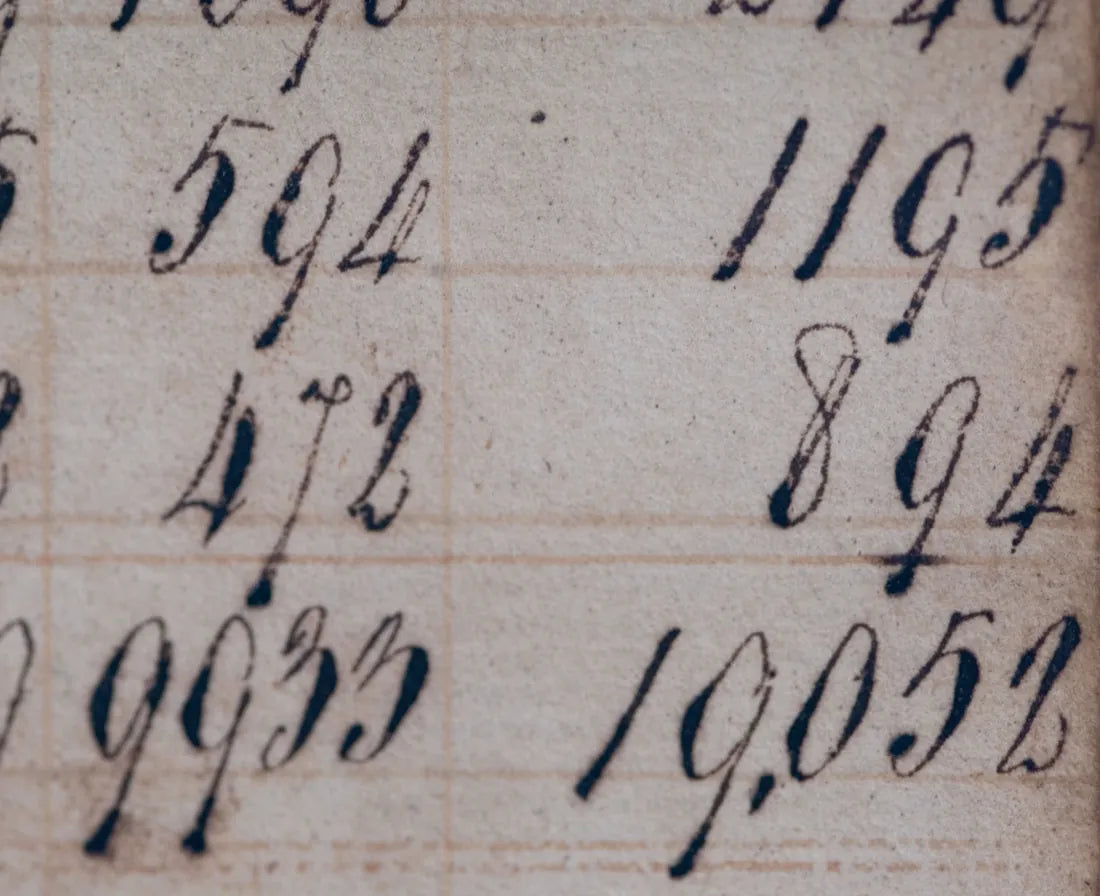 594 1195
472 894
9933 19,052